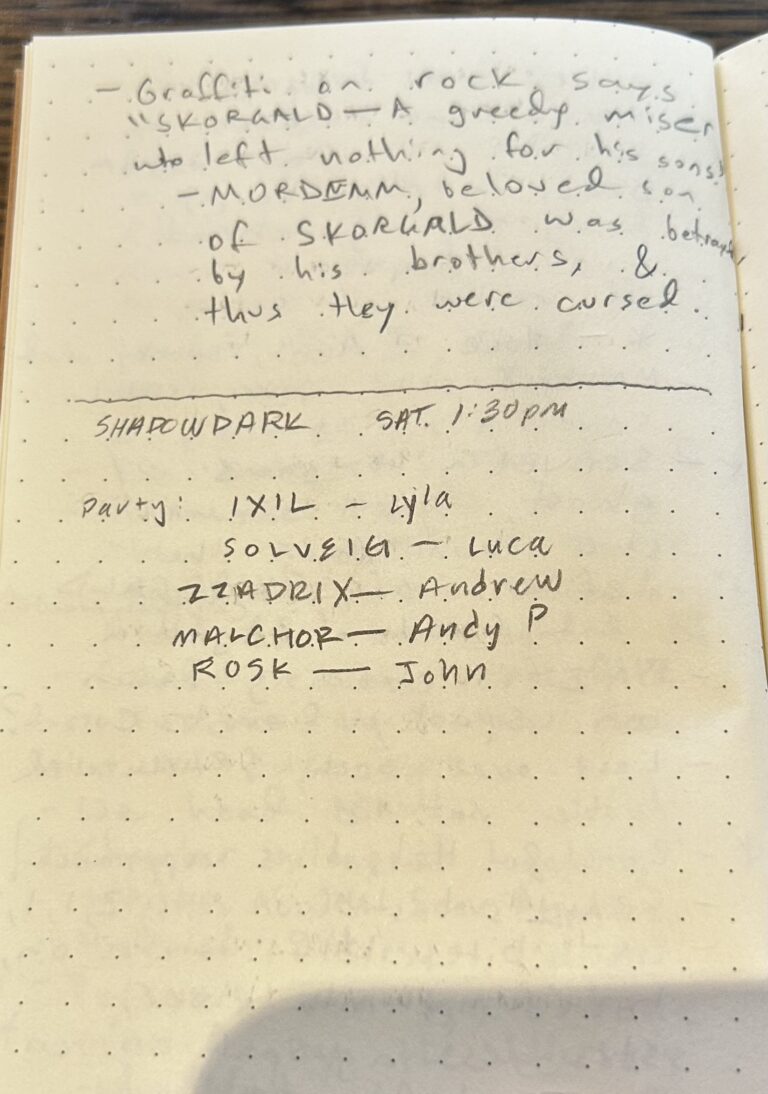 - Graffiti on rock says
"SKORGALD — A greedy miser
who left nothing for his sons"
- MORDENM, beloved son
of SKORGALD was
by his brothers, &
thus they were cursed.
SHADOWDARK SAT. 1:30pm
Party: IXIL - Lyla
SOLVEIG - Luca
ZZADRIX - Andrew
MALCHOR - Andy P
ROSK — John